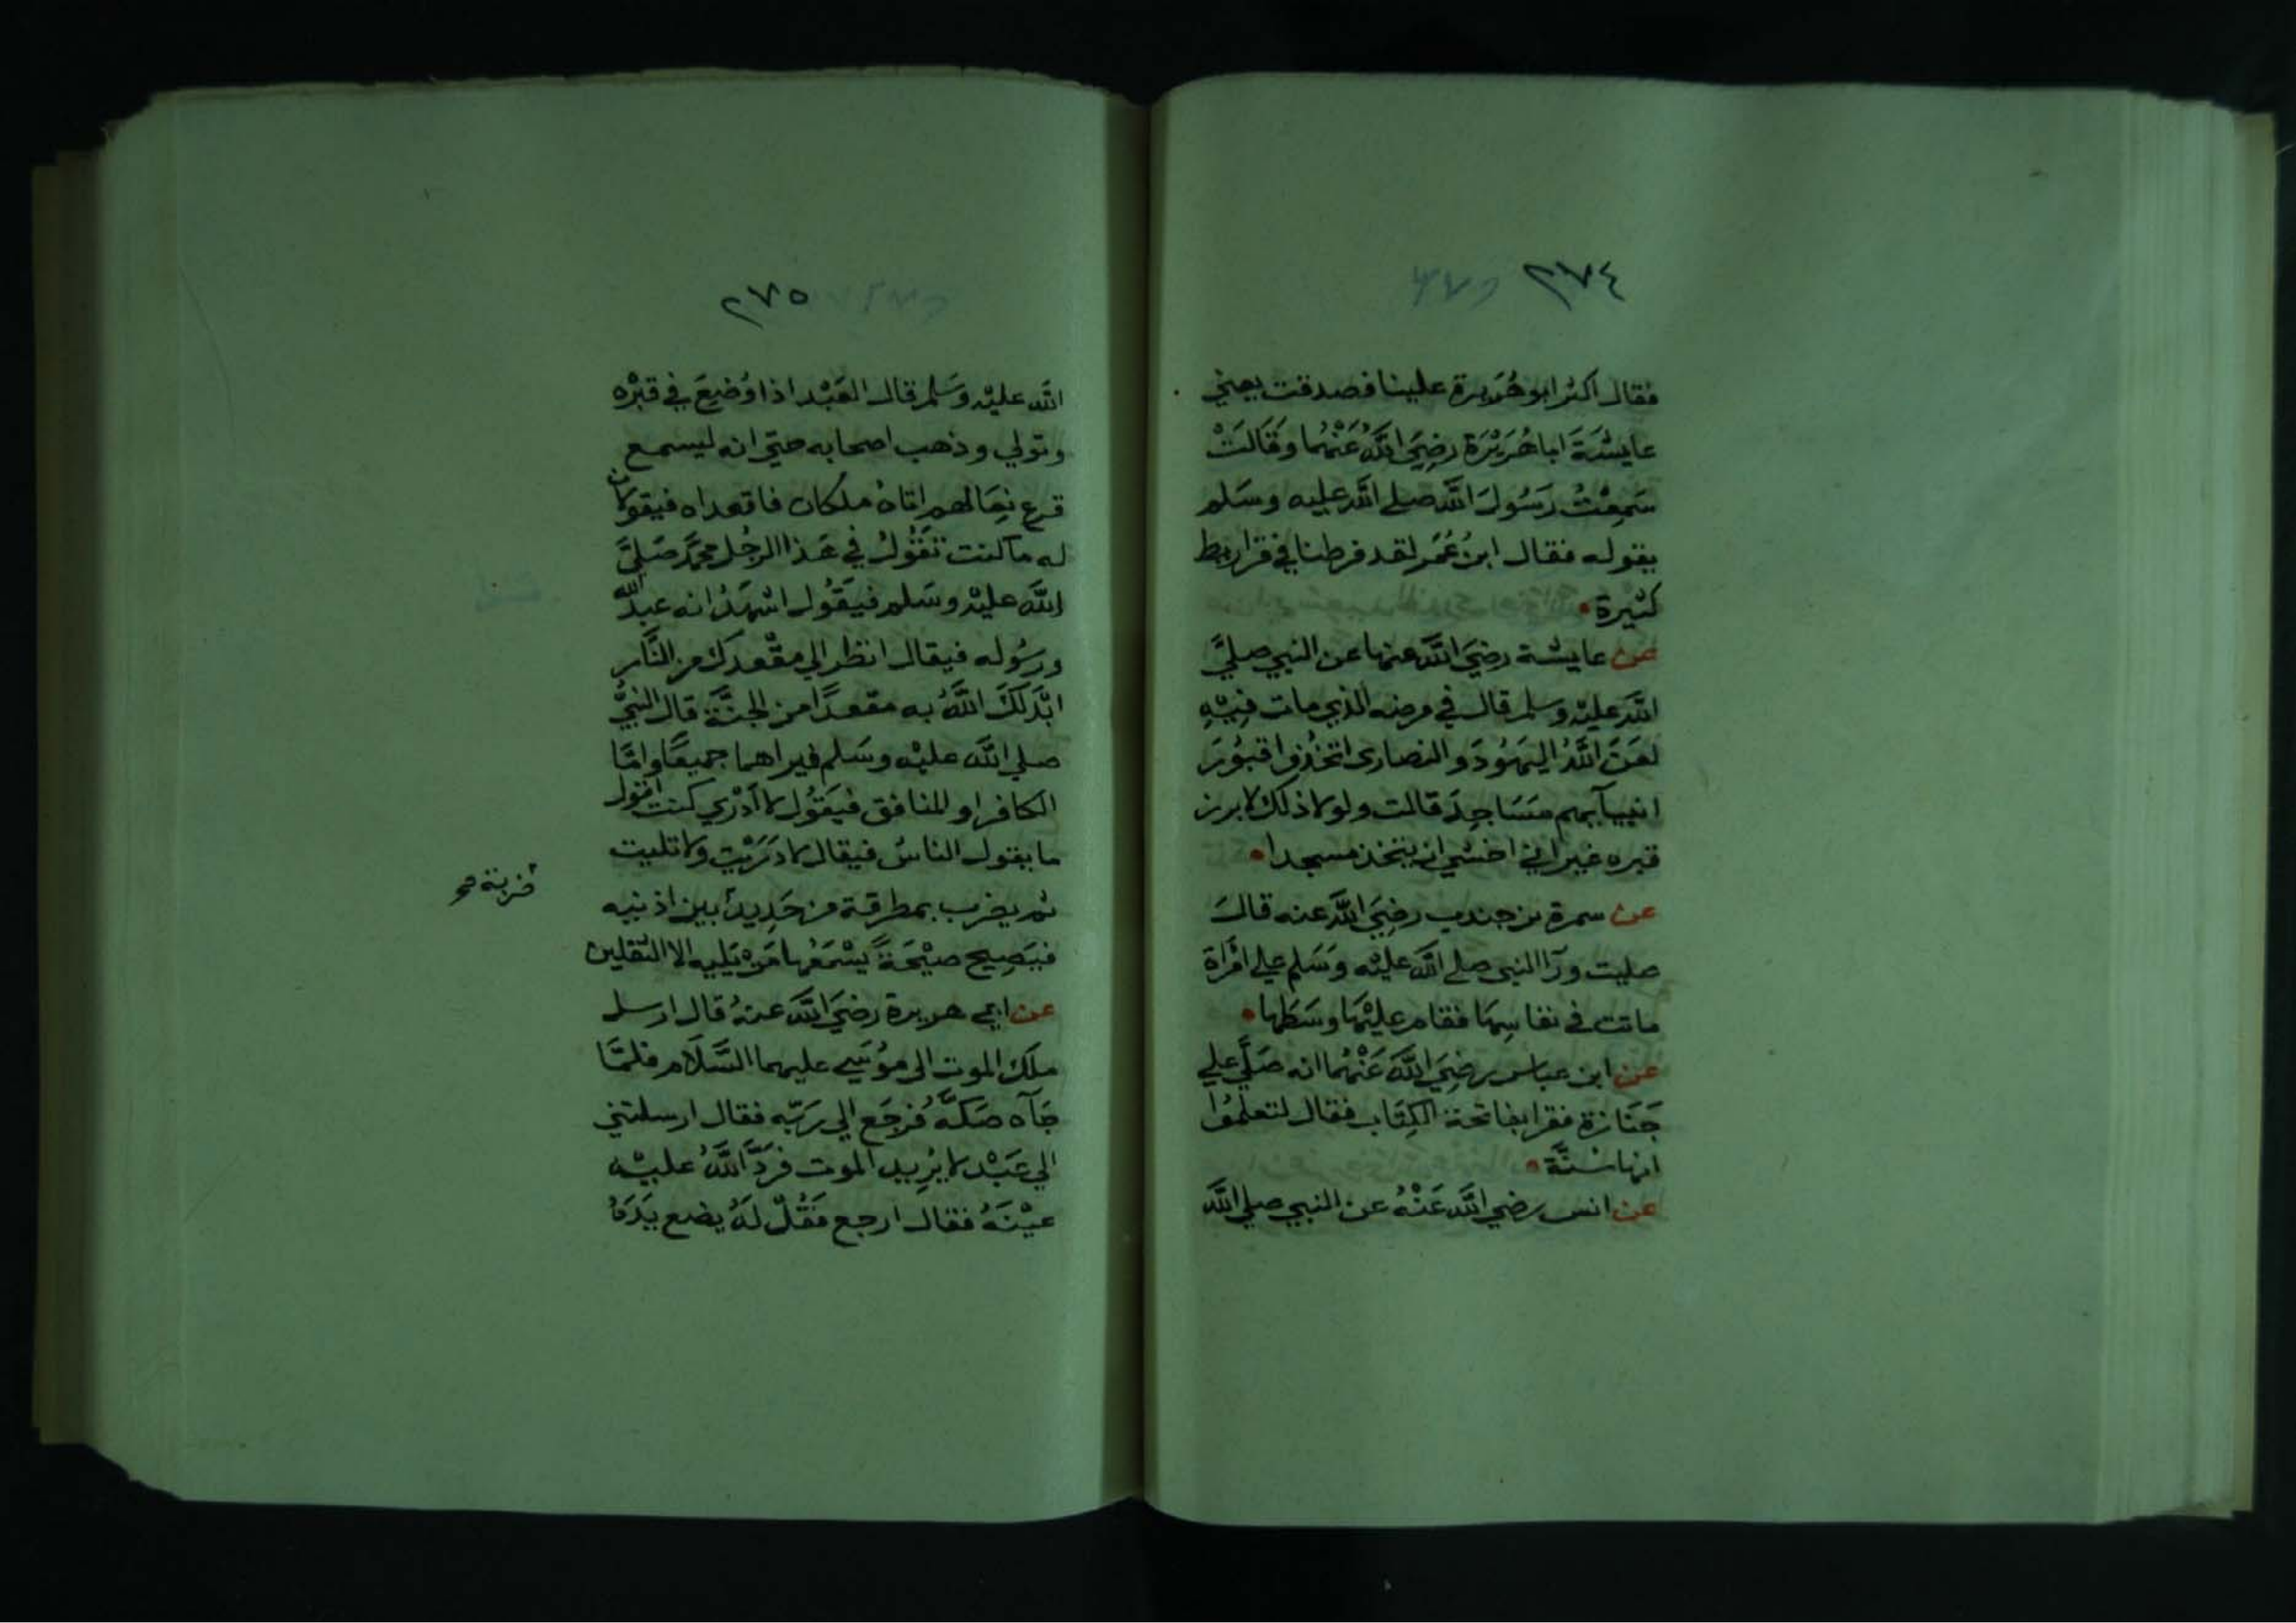 ٢٧٤
فقال اكثر ابو هُرَيرة علينا فصدقت يعني
عايشَةَ ابا هُرَيْرَة رضِيَ اللَّهُ عَنْهُما وقَالَتْ
سَمِعْتُ رَسُولَ اللَّه صلي اللَّه عليه وسَلم
يقوله فقال ابنُ عُمَر لقد فرطنا في قراريط
كثيرة
عن عايشة رضيَ اللَّه عنها عن النبي صليَّ
اللَّه عليْه وسلم قال في مرضه الذي مات فيْهِ
لعَنَ اللَّهُ اليَهُودَ والنصارى اتخذوا قبُورَ
انبيآيهم مَسَاجِدَ قالت ولولا ذلك لابرز
قبره غير اني اخشي ان يتخذ مسجدا
عن سمرة بن جندب رضِيَ اللَّه عنه قالَ
صليت ورآ النبي صلي اللَّه عليْه وسَلم علي امْرَاة
ماتت في نفاسِهَا فقام عليْهَا وسَطَها
عن ابن عباس رضِيَ اللَّه عَنْهُما انه صَلَّي علي
جَنَازة فقرا بفاتحة الكِتَاب فقال لتعلمُوا
انها سُنَّة
عن انس رضي اللَّه عَنْهُ عن النبي صلي اللَّه
٢٧٥
اللَّه عليْه وسَلم قال العَبْد اذا وُضِعَ في قبْره
وتولي وذهب اصحابه حتي انه ليسمع
قرع نِعَالهم اتاهُ ملكان فاقعداه فيقولان
له ما كنت تَقُولُ في هَذا الرجُل محمَّد صَليَّ
اللَّه عليْه وسَلم فيقُول اشهَدُ انه عبد اللَّه
ورسُوله فيقال انظر الي مقْعدك من النَّار
ابْدَلكَ اللَّهُ به مقعدًا من الجنَّة قال النبيُّ
صلي اللَّه عليْه وسَلم فيراهما جميعًا وامَّا
الكافر او المنافق فيَقُول لا ادْري كنت اقول
ما يقول الناسُ فيقال لا دَرَيْت ولا تليت
ثم يضرب بمطرقة من حَدِيد بين اذنيه
ضربة صح
فيَصِيح صيْحَةً يَسْمَعُها مَنْ يَليه الا الثقلين
عن ابي هريرة رضيَ اللَّه عنهُ قال ارسل
ملَك الموت الى مُوسَي عليهما السَّلَام فلمَّا
جَآه صَكَّهُ فرجَع الي ربّه فقال ارسلتني
الي عَبْد لا يُريد الموت فردَّ اللَّهُ عليْه
عيْنَهُ فقال ارجع فقُلْ لهُ يضع يَدَهُ